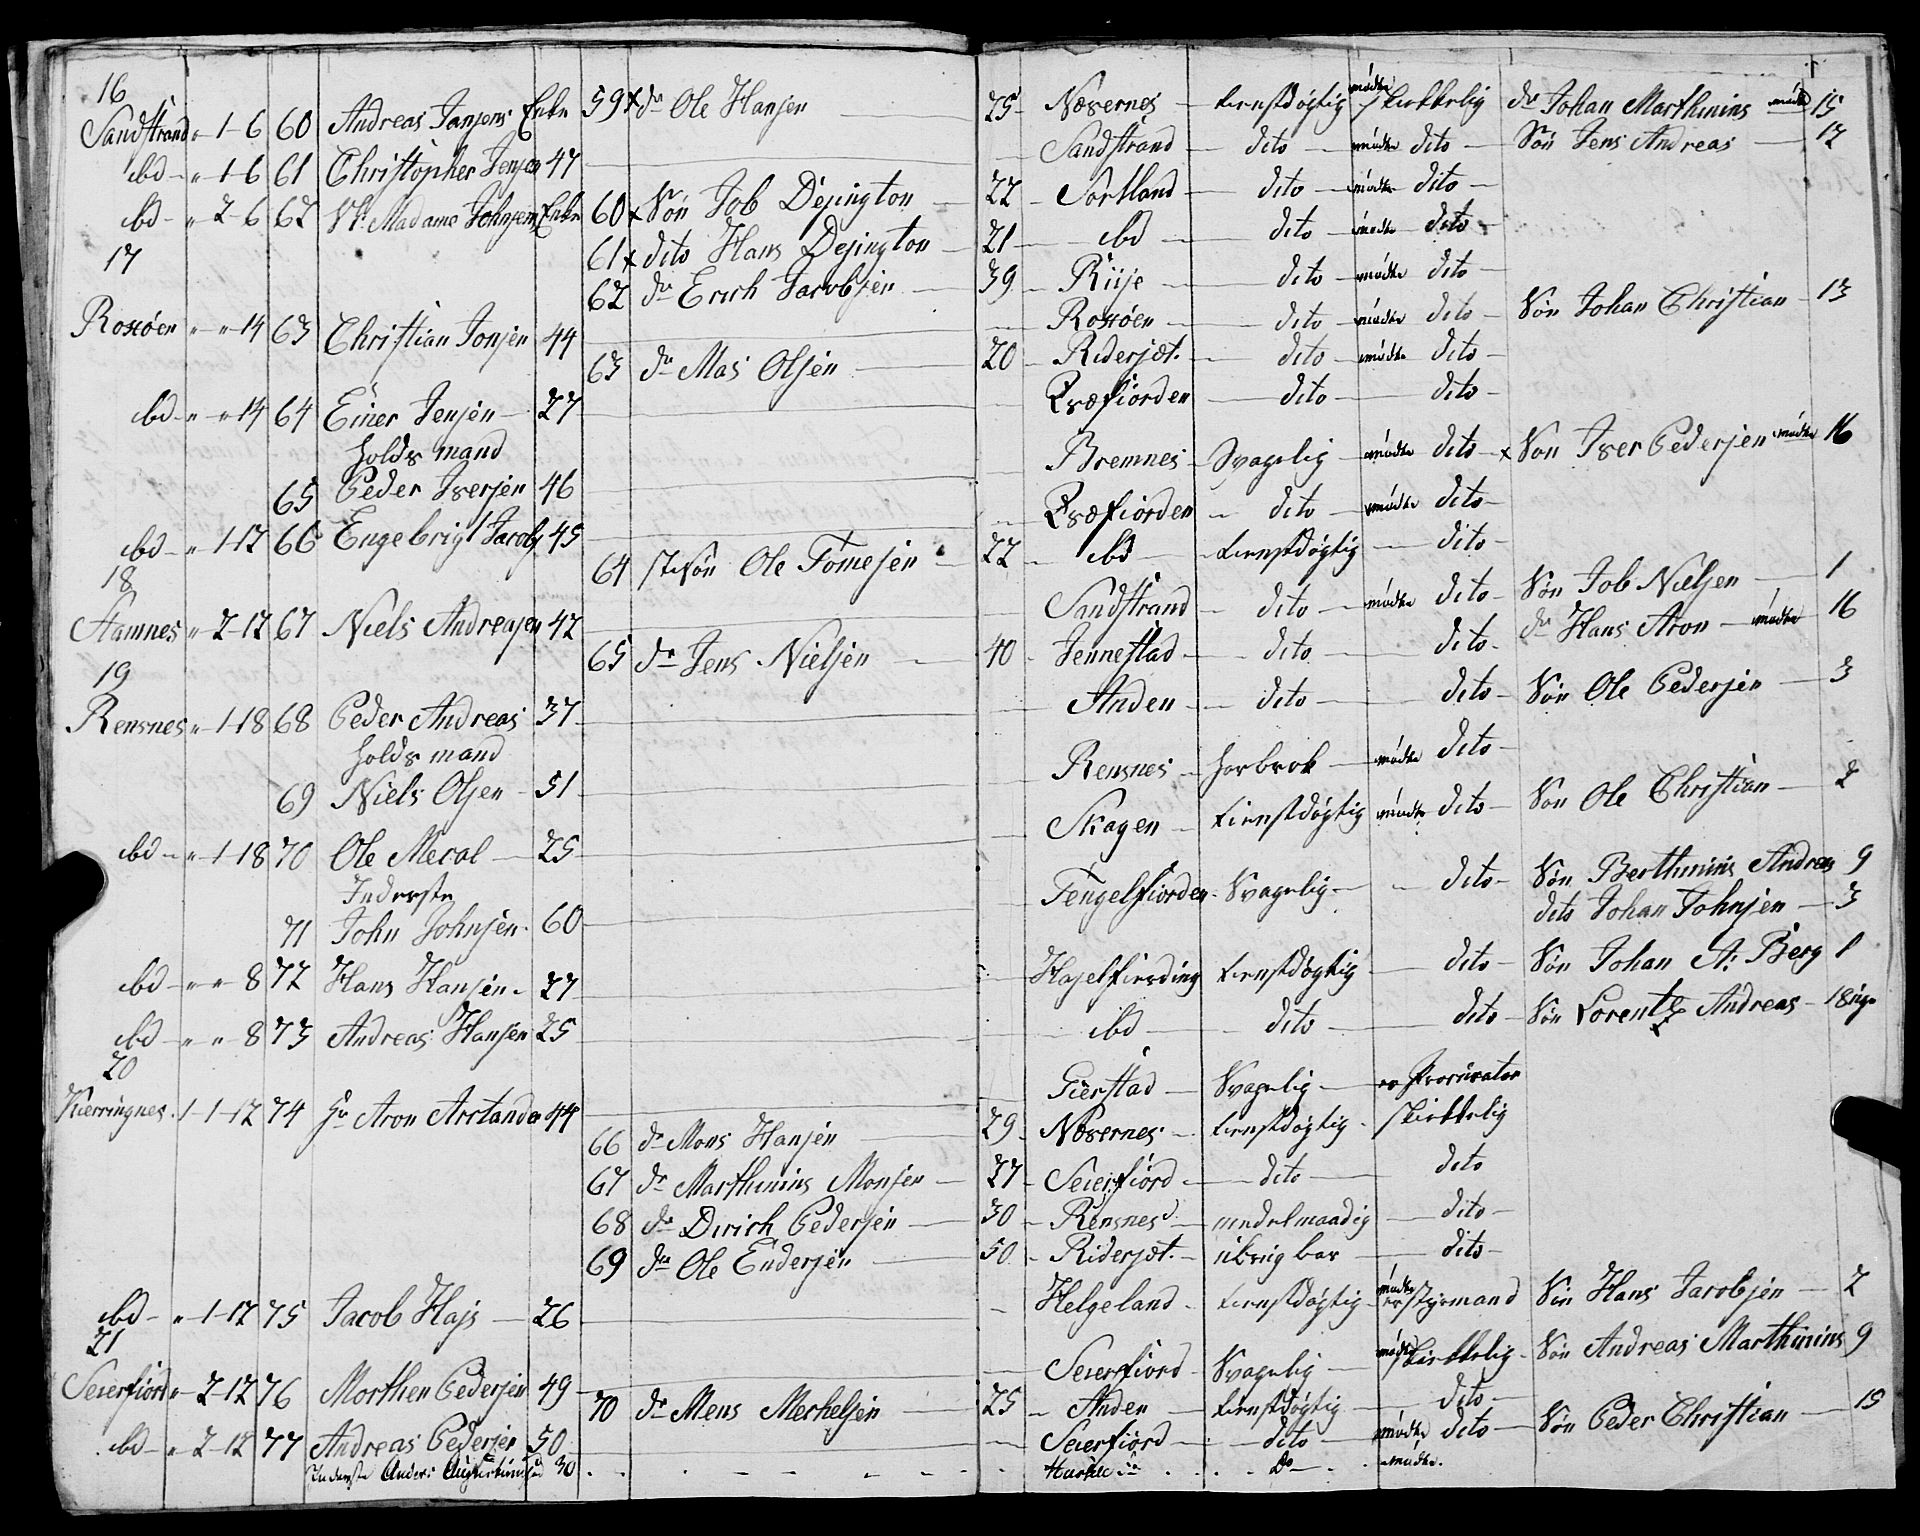 16
Sandstrand " 1-6 60 Andreas Jansens Enke 59 x dr Ole Hansen 25 Næsernes tienstdøgtig mødte skikkelig dr Johan Marthinius mødte 15
ibd " 1-6 61 Christopher Jensen 47 Sandstrand dito mødte dito Søn Jens Andreas 12
ibd " 2-6 62 Madame Johnsens Enke 60 x Søn Job Desington 22 Sortland dito mødte dito
61 x dito Hans Desington 21 ibd dito mødte dito
17
62 dr Erich Jacobsen 39 Riise dito mødte dito
Roxøen " " 14 63 Christian Jonsen 44 Roxøen dito mødte dito Søn Johan Christian 13
63 dr Mas Olsen 20 Ridersæt. dito mødte dito
ibd " " 14 64 Einer Jensen 27 Qvæfiorden dito dito
holds mand
65 Peder Iversen 46 Bremnes Svagelig mødte dito x Søn Iver Pedersen mødte 16
ibd " 1-12 66 Engebrigt Jacobs 45 Qvæfiorden dito mødte dito
18
64 stesøn Ole Tomesen 22 ibd tienstdøgtig dito
Stamnes " 2-12 67 Niels Andreasen 42 Sandstrand dito mødte dito Søn Job Nielsen 1
65 dr Jens Nielsen 40 Jennestad dito dito dr Hans Aron mødte 16
19
Rensnes " 1-18 68 Peder Andreas 37 Anden dito dito Søn Ole Pedersen 3
holds mand
69 Niels Olsen 51 Rensnes harbrok mødte dito
ibd " 1-18 70 Ole Meral 25 Skagen tienstdøgtig mødte dito Søn Ole Christian 2
Inderste
71 John Johnsen 60 Tengelfiorden Svagelig dito Søn Berthinius Andreas 9
dito Johan Johnsen 3
ibd " " 8 72 Hans Hansen 27 Haselfiording tienstdøgtig dito Søn Johan A: Berg 1
ibd " " 8 73 Andreas Hansen 25 ibd dito dito Søn Lorentz Andreas 18 uge
20
Kierringnes 1 1-12 74 Hr Aron Arctander 44 Gierstad Svagelig er Procurator
66 dr Mons Hansen 29 Næsernes tienstdøgtig skikkelig
67 dr Marthinius Monsen 27 Seierfiord dito dito
68 dr Dirich Pedersen 30 Rensnes medelmaadig dito
69 dr Ole Endersen 50 Ridersæt. ubrug bar dito
ibd " 1-12 75 Jacob Hajs 26 Helgeland tienstdøgtig mødte er styrmand Søn Hans Jacobsen 2
21
Seierfiord " 2-12 76 Morthen Pedersen 49 Seierfiord Svagelig mødte skikkelig Søn Andreas Marthinius 9
70 dr Mens Merkelsen 25 Anden tienstdøgtig dito
ibd " 2-12 77 Andreas Pedersen 50 Seierfiord dito mødte dito Søn Peder Christian 15
Inderste Anders 30 Do mødte.